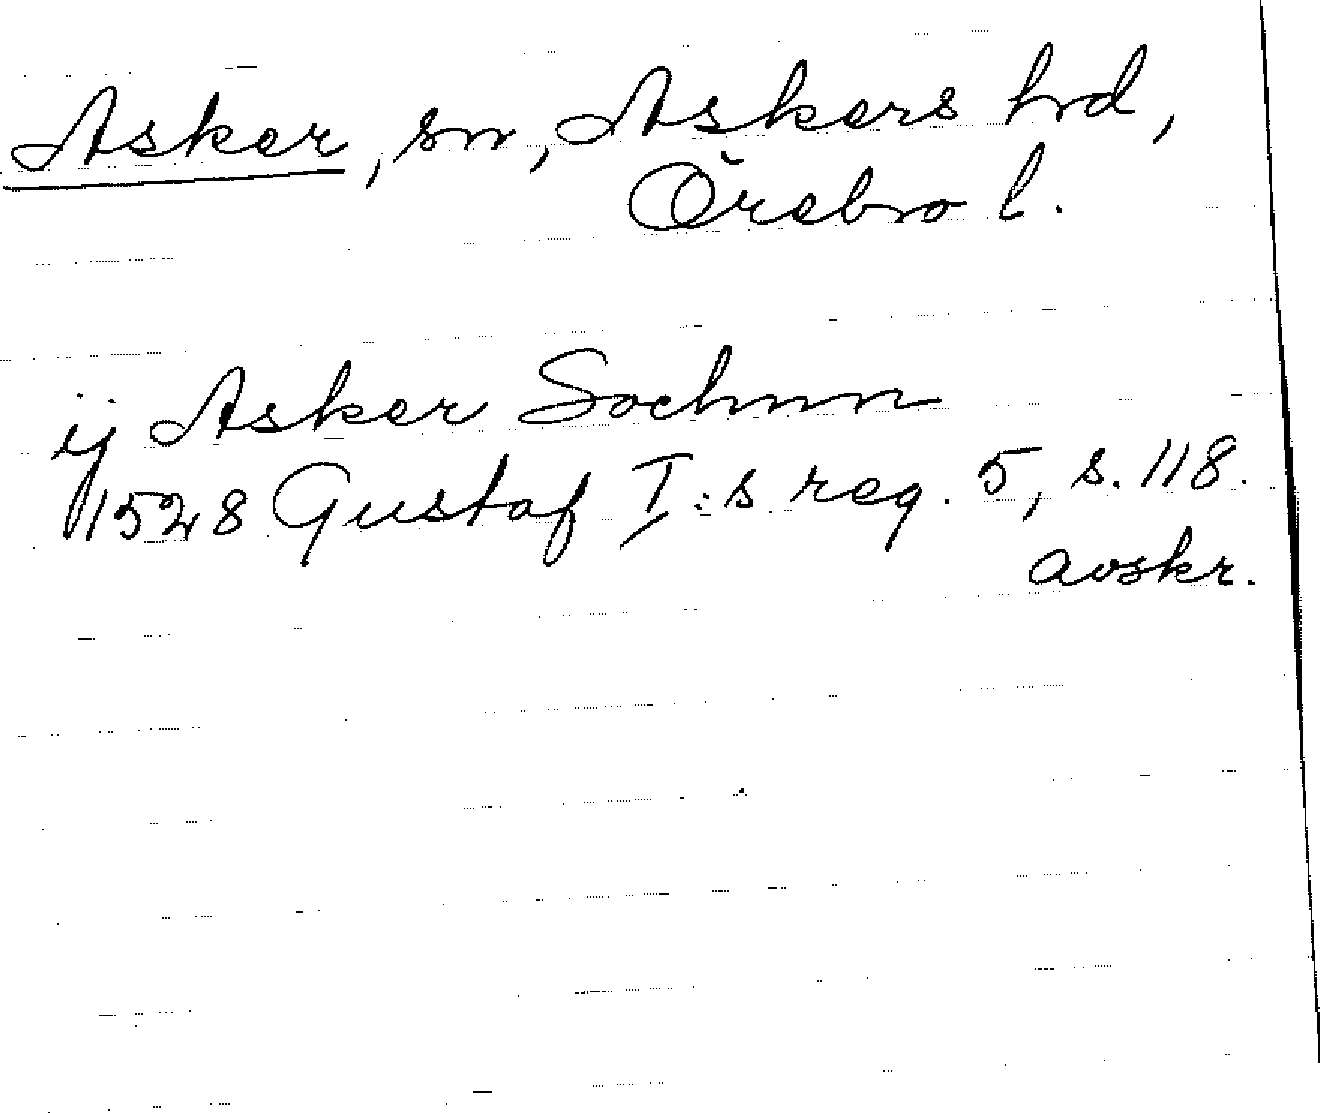 Asker, sn, Askers hrd,
Örebro l.
ij Asker Sochnn
1528 Gustaf I:s reg. 5, s. 118.
avskr.